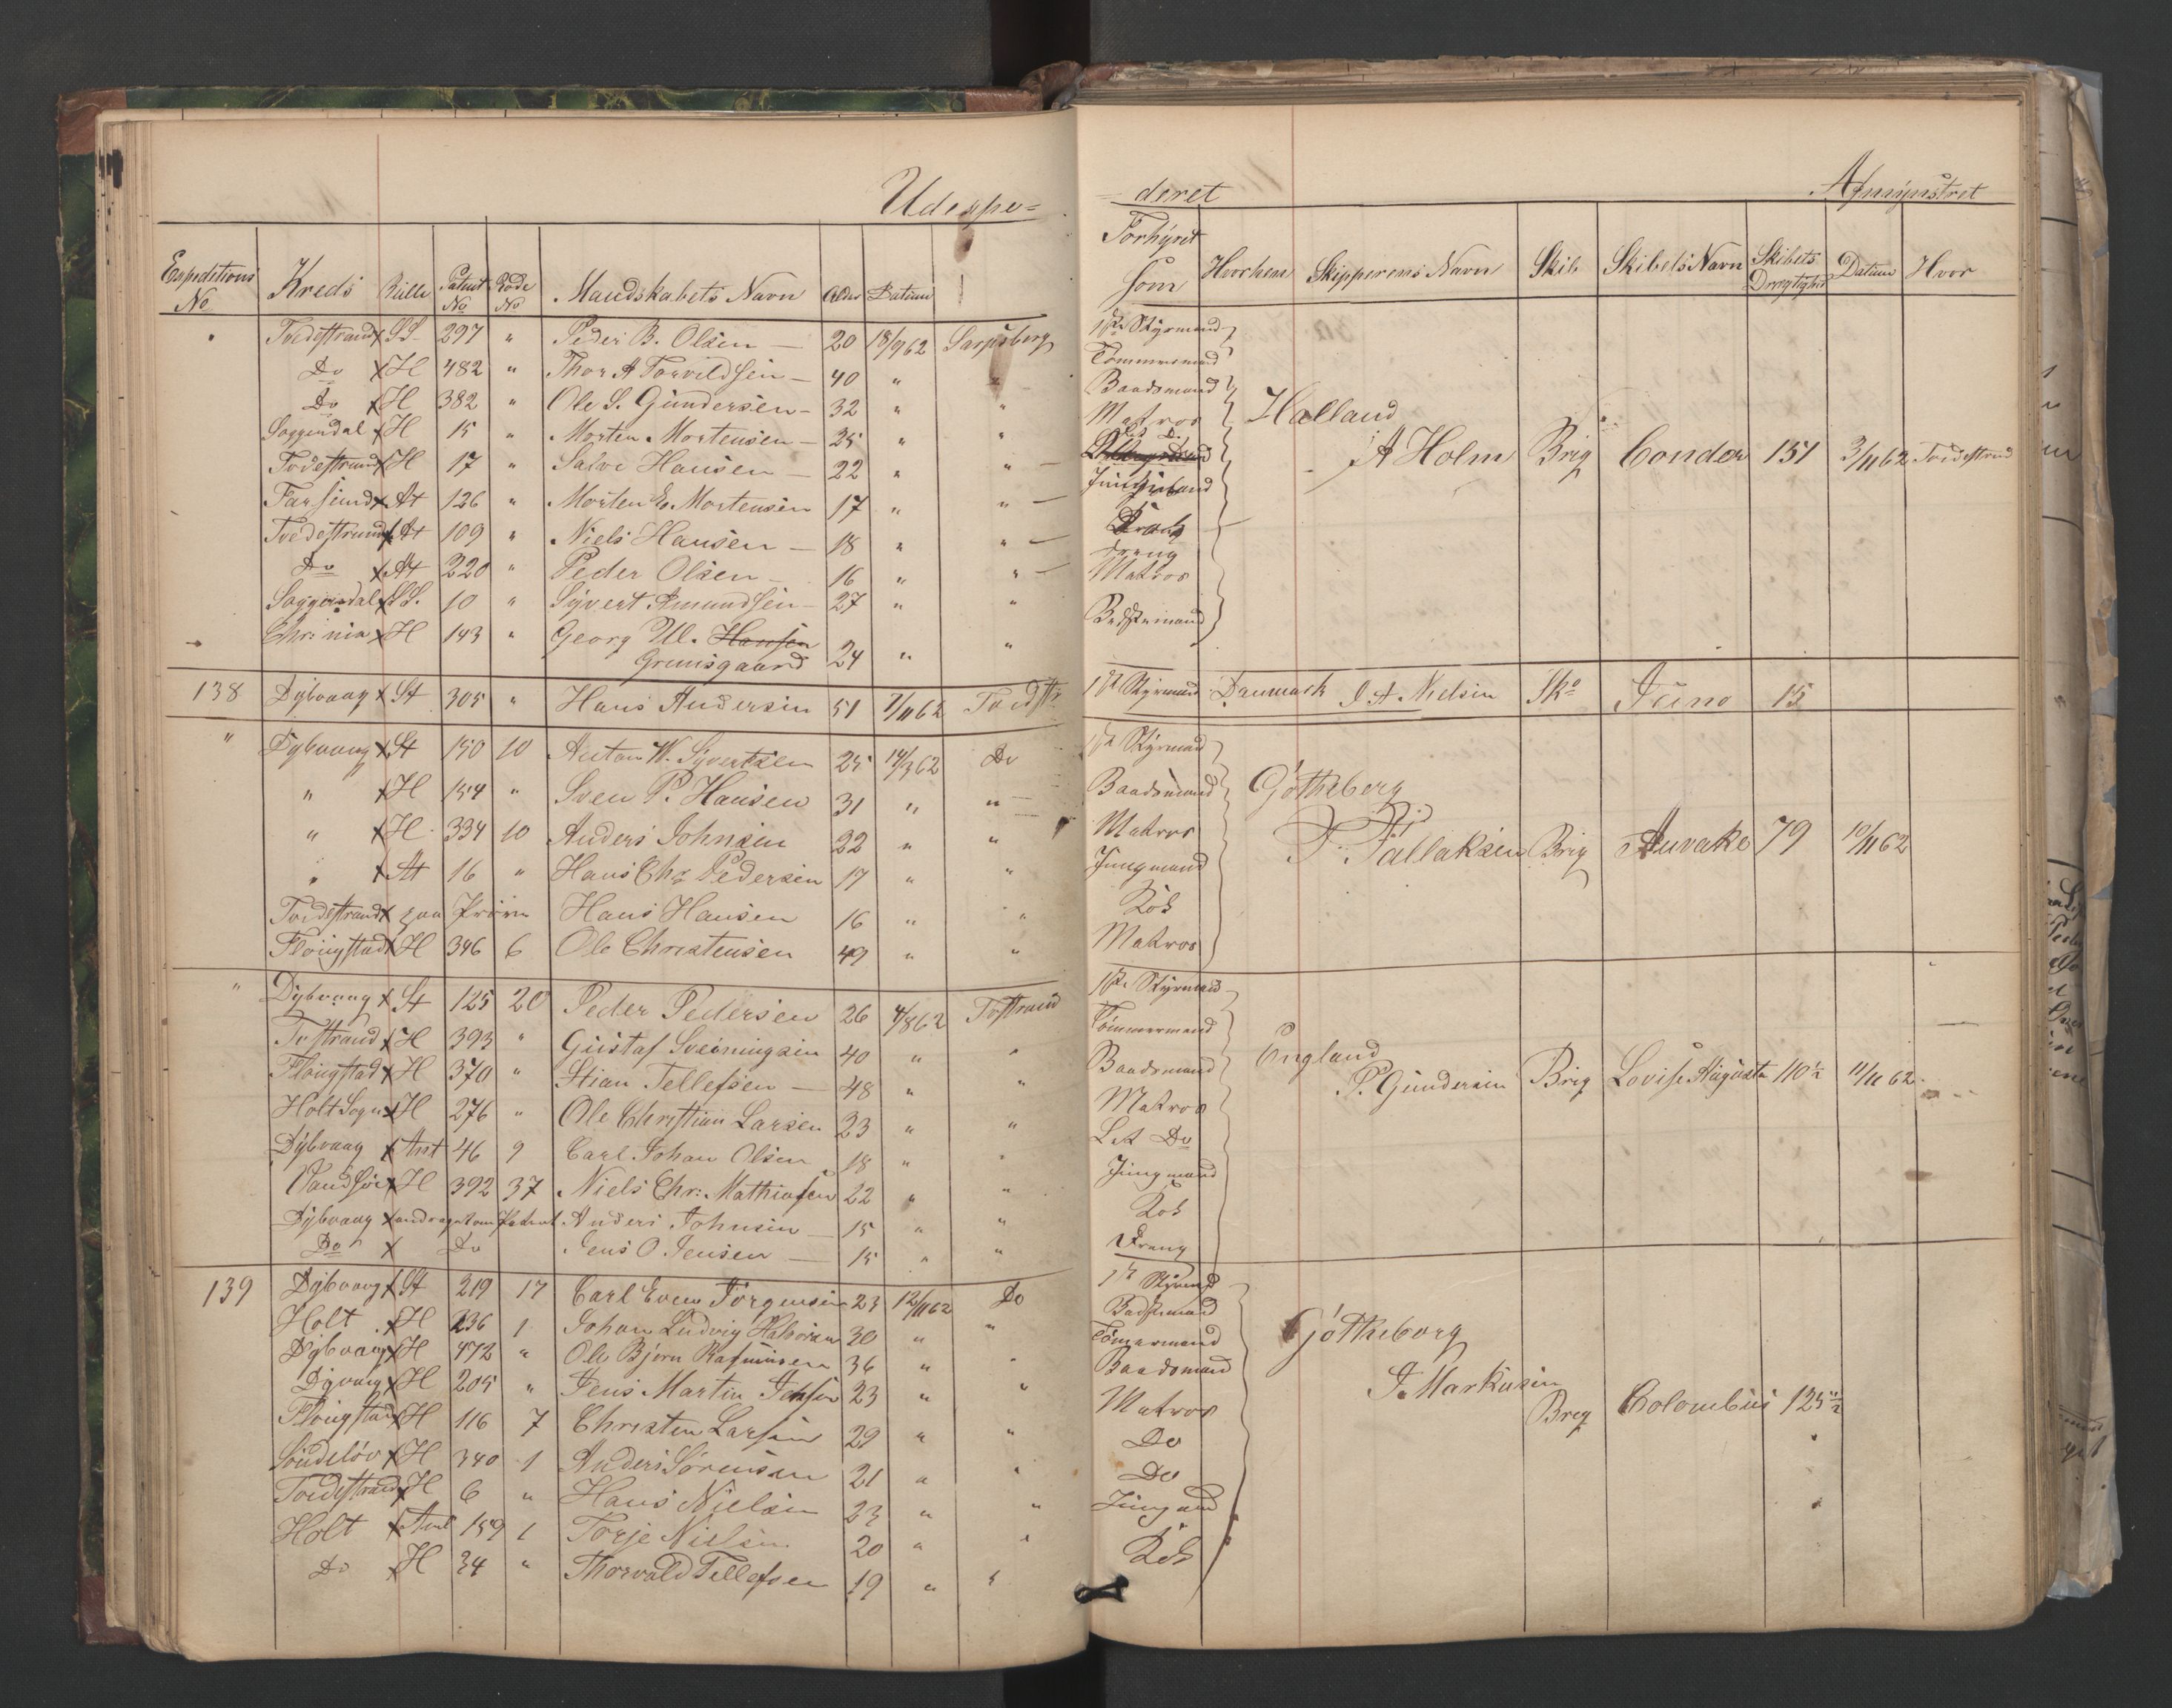 Udexpe=
Expeditions No Kreds Rulle Patent No Rode No Mandskabets Navn Alder Datum
Tvedestrand x SS. 297 " Peder B. Olsen — 20 18/9 62 Sarpsborg
Do x H 482 " Thor A Torvildsen — 40 "
Do x H 382 " Ole S. Gundersen — 32 " "
Soggendal x H 15 " Morten Mortensen — 25 " "
Tvedestrand x H 17 " Salve Hansen — 22 " "
Farsund x At 126 " Morten E. Mortensen 17 " "
Tvedestrand x At 109 " Niels Hansen — 18 " "
Do x At 220 " Peder Olsen — 16 " "
Soggendal x SS. 10 " Syvert Amundsen — 27 " "
Chr:nia x H 143 " Georg Ul. Hansen
Grimsgaard 24 " "
138 Dybvaag x St 305 " Hans Andersen 51 7/11 62 Tvedstr
" Dybvaag x St 150 10 Anton W. Syvertsen 25 14/3 62 Do
" x H 154 " Sven P. Hansen 31 " "
" x H 334 10 Anders Johnsen 22 " "
" x At 16 " Hans Chr Pedersen 17 " "
Tvedestrand x paa Prøve Hans Hansen 16 " "
Flougstad x H 346 6 Ole Christensen 49 " "
" Dybvaag x St 125 20 Peder Pedersen 26 4/8 62 Tvstrand
Tvstrand x H 393 " Gustaf Svenningsen 40 " "
Flougstad x H 370 " Stian Tellefsen — 48 " "
Holt Sogn x H 276 " Ole Christian Larsen 23 " "
Dybvaag x Ant 46 9 Carl Johan Olsen 18 " "
x H 392 37 Niels Chr: Mathiasen 22 " "
Dybvaag x andraget om Patent Anders Johnsen 15 " "
Do x Do Jens O. Jensen — 15 " "
139 Dybvaag x St 219 17 Carl Even Jörgensen 23 12/11 62 Do
Holt x H 236 1 Johan Ludvig Halvorsen 30 " "
Dybvaag x H 472 " Ole Bjørn Rasmussen 36 " "
Dyvaag x H 205 " Jens Martin Jensen 23 " "
Flougstad x H 116 7 Christen Larsen 29 " "
Söndeløv x H 340 1 Anders Sørensen 21 " "
Tvedestrand x H 6 " Hans Nielsen 23 " "
Holt x Ant 159 1 Torje Nielsen 20 " "
Do x H 34 " Thorvald Tellefsen 19 " "
=deret Afmynstret
Forhyret som Hvorhen Skipperens Navn Skib Skibets Navn Skibets Drægtighed Datum Hvor
1ste Styrmand
Tømmermand
Baadsmand
Matros Halland
Let D.
A Holm Brig Condor 151 3/11 62 Tvedestrand
Jungmand
Kok
Dreng
Matros
Bedstemand
1ste Styrmand Danmark A Nielsen Sko Juno 15
1ste Styrmand
Baadsmand Götheborg
Matros T. Tallaksen Brig Anvake 79 10/11 62
Jungmand
Kok
Matros
1ste Styrmand
Tömmermand
Baadsmand England
P. Gundersen Brig Lovise Augusta 110½ 11/11 62
Matros
Let Do
Jungmand
Kok
Dreng
1ste Styrmd
Bedstemand
Tömermand Götheborg
Baadsmand
Matros J. Markusen
Brig Colombus 125½
Do
Do
Jungmand
Kok